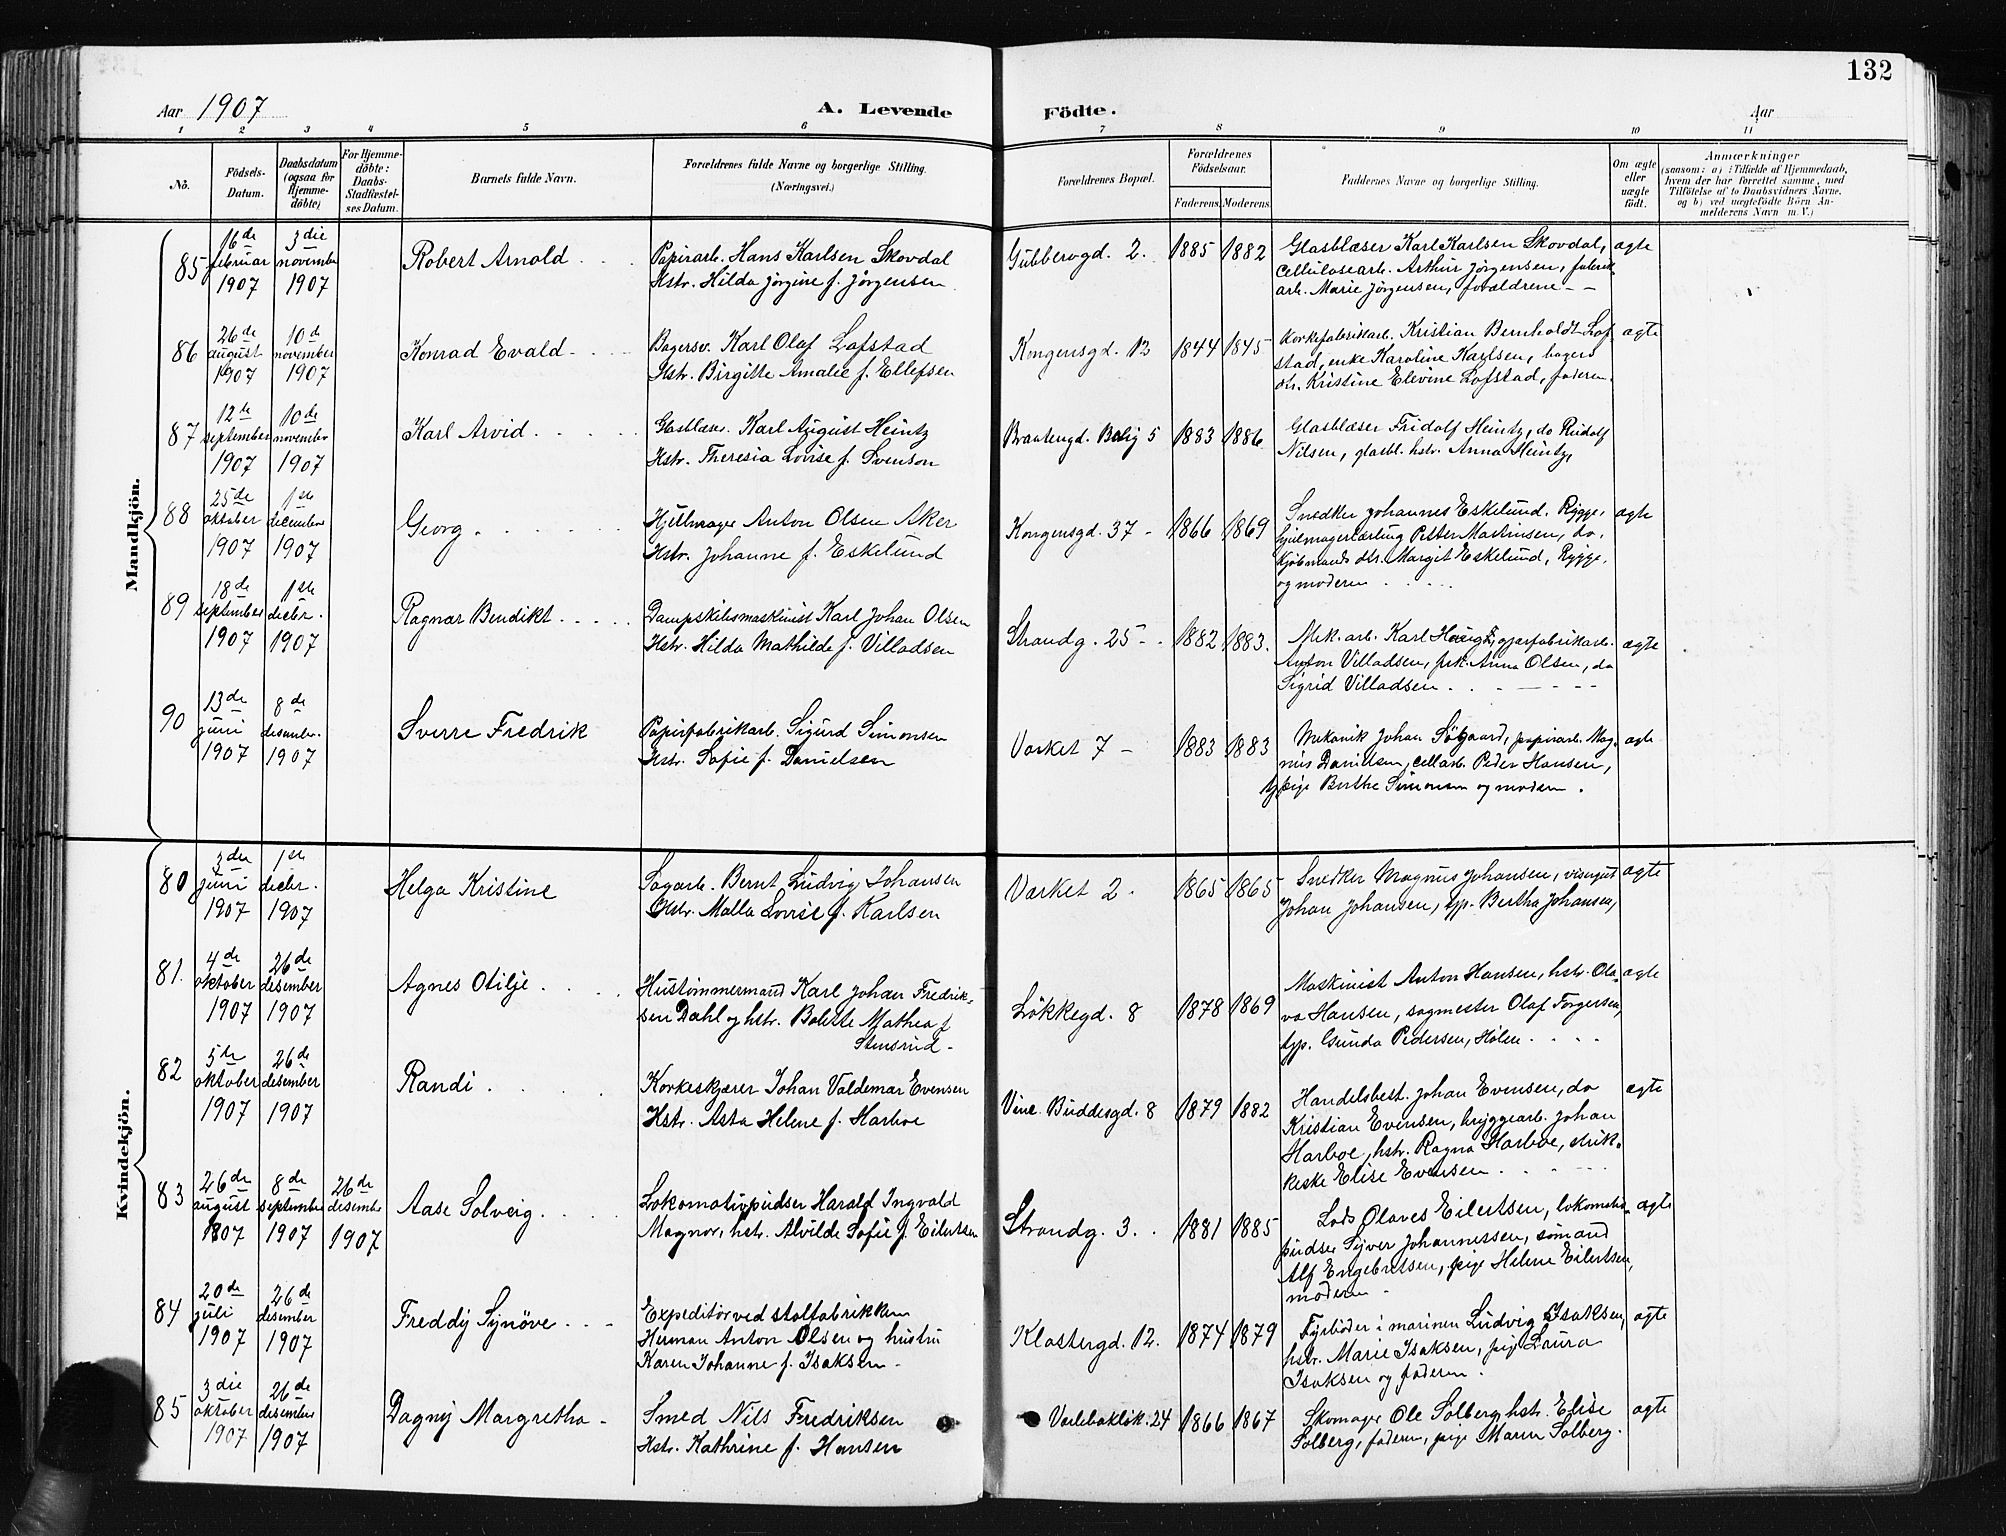 132
Aar 1907
A. Levende Födte.
Aar
1 2 3 4 5 6 7 8 9 10 11
No.
Födsels-
Datum.
Daabsdatum
(ogsaa for
Hjemme-
döbte)
For Hjemme-
döbte:
Daabs-
Stadfæstel-
ses Datum.
Barnets fulde Navn.
Forældrenes fulde Navne og borgerlige Stilling.
(Næringsvei.)
Forældrenes Bopæl.
Forældrenes
Födselsaar.
Faderens. Moderens.
Faddernes Navne og borgerlige Stilling.
Om ægte
eller
uægte
födt.
Anmærkninger
(saasom: a) i Tilfælde af Hjemmedaab,
hvem der har forrettet samme, med
Tilföielse af to Daabsvidners Navne.
og b) ved uægtefödte Börn An-
melderens Navn m. V.)
Mandkjön.
85
16de
februar
1907
3die
november
1907
Robert Arnold
Papirarb. Hans Karlsen Skovdal
Hstr. Hilda Jørgine f. Jørgensen
Gubberogd. 2.
1885 1882
Glasblæser Karl Karlsen Skovdal,
cellulosearb. Arthur Jørgensen, fabrik.
arb. Marie Jørgensen, forældrene
ægte
86
26de
august
1907
10de
november
1907
Konrad Evald
Bagersv. Karl Olaf Lofstad
Hstr. Birgitte Amalie f. Ellefsen
Kongensgd. 12
1844 1845
Korkefabrikarb. Kristian Bernholdt Lof-
stad, enke Karoline Karlsen, bager
dtr. Kristine Elevine Lofstad, faderen.
ægte
87
12te
september
1907
10de
november
1907
Karl Arvid
Glasblæs. Karl August Heintz
Hstr. Theresia Lovise f. Svenson
Braatengd. Bolig 5
1883 1886
Glasblæser Fridolf Heintz, do Rudolf
Nilsen, glasbl. hstr. Anna Heintz,
88
25de
oktober
1907
1ste
december
1907
Georg
Hjulmager Anton Olsen Aker
Hstr. Johanne f. Eskelund
Kongensgd. 37
1866 1869
Snedker Johannes Eskelund, Rygge,
hjulmagerlærling Petter Martinsen, do,
kjøbmands dtr. Margit Eskelund, Rygge,
og moderen
ægte
89
18de
september
1907
1ste
decbr.
1907
Ragnar Bendikt
Dampskibsmaskinist Karl Johan Olsen
Hstr. Hilda Mathilde f. Villadsen
Strandg. 25
1882 1883.
Mek. arb. Karl Haug, gjærfabrikarb.
Anton Villadsen, frk. Anna Olsen, do
Sigrid Villadsen
ægte
90
13de
juni
1907
8de
desember.
1907
Sverre Fredrik
Papirfabrikarb. Sigurd Simonsen
Hstr. Sofie f. Danielsen
Varket 7
1883 1883
Mekanik Johan Søgaard, papirarb. Mag-
nus Danielsen, cellarb. Peder Hansen,
pige Berthe Simonsen og moderen.
ægte
Kvindekjön.
80
3die
juni
1907
1ste
decbr.
1907
Helga Kristine
Sagarb. Bernt Ludvig Johansen
Hstr. Malla Lovise f. Karlsen
Varket 2.
1865 1865
Snedker Magnus Johansen, visergut
Johan Johansen, typ. Bertha Johansen,
ægte
81.
4de
oktober
1907
26de
desember
1907
Agnes Otilje
Hustømmermand Karl Johan Fredrik-
sen Dahl og hstr. Bolette Mathea f.
Stensrud
Løkkegd. 8
1878 1869
Maskinist Anton Hansen, hstr. Ola-
va Hansen, sagmester Olaf Torgersen,
typ. Gunda Pedersen, Hølen
ægte
82
5te
oktober
1907
26de
desember
1907
Randi
Korkeskjærer Johan Valdemar Evensen
Hstr. Asta Helene f. Harboe
Vinc. Buddesgd. 8
1879 1882
Handelsbest. Johan Evensen, do
Kristian Evensen, bryggearb. Johan
Harboe, hstr. Ragna Harboe, strik-
keske Elise Evensen
ægte
83
26de
august
1907
8de
september
1907
26de
desember
1907
Aase Solveig
Lokomotivpudser Harald Ingvald
Magnor, hstr. Alvilde Sofie f. Eilertsen
Strandg. 3.
1881 1885
Lods Olaves Eilertsen, lokomotiv-
pudser Syver Johannessen, sømand
Alf Engebretsen, pige Helene Eilertsen,
moderen
ægte
84
20de
juli
1907
26de
desember
1907
Freddy Synøve
Expeditør ved stolfabrikken
Herman Anton Olsen og hustru
Karen Johanne f. Isaksen
Klostergd. 12.
1874 1879
Fyrbøder i marinen Ludvig Isaksen,
hstr. Marie Isaksen, pige Laura
Isaksen og faderen.
ægte
85
3die
oktober
1907
26de
desember
1907
Dagny Margretha
Smed Nils Fredriksen
Hstr. Kathrine f. Hansen
Varlebakløk. 24
1866 1867
Skomager Ole Solberg, hstr. Elise
Solberg, faderen, pige Maren Solberg.
ægte